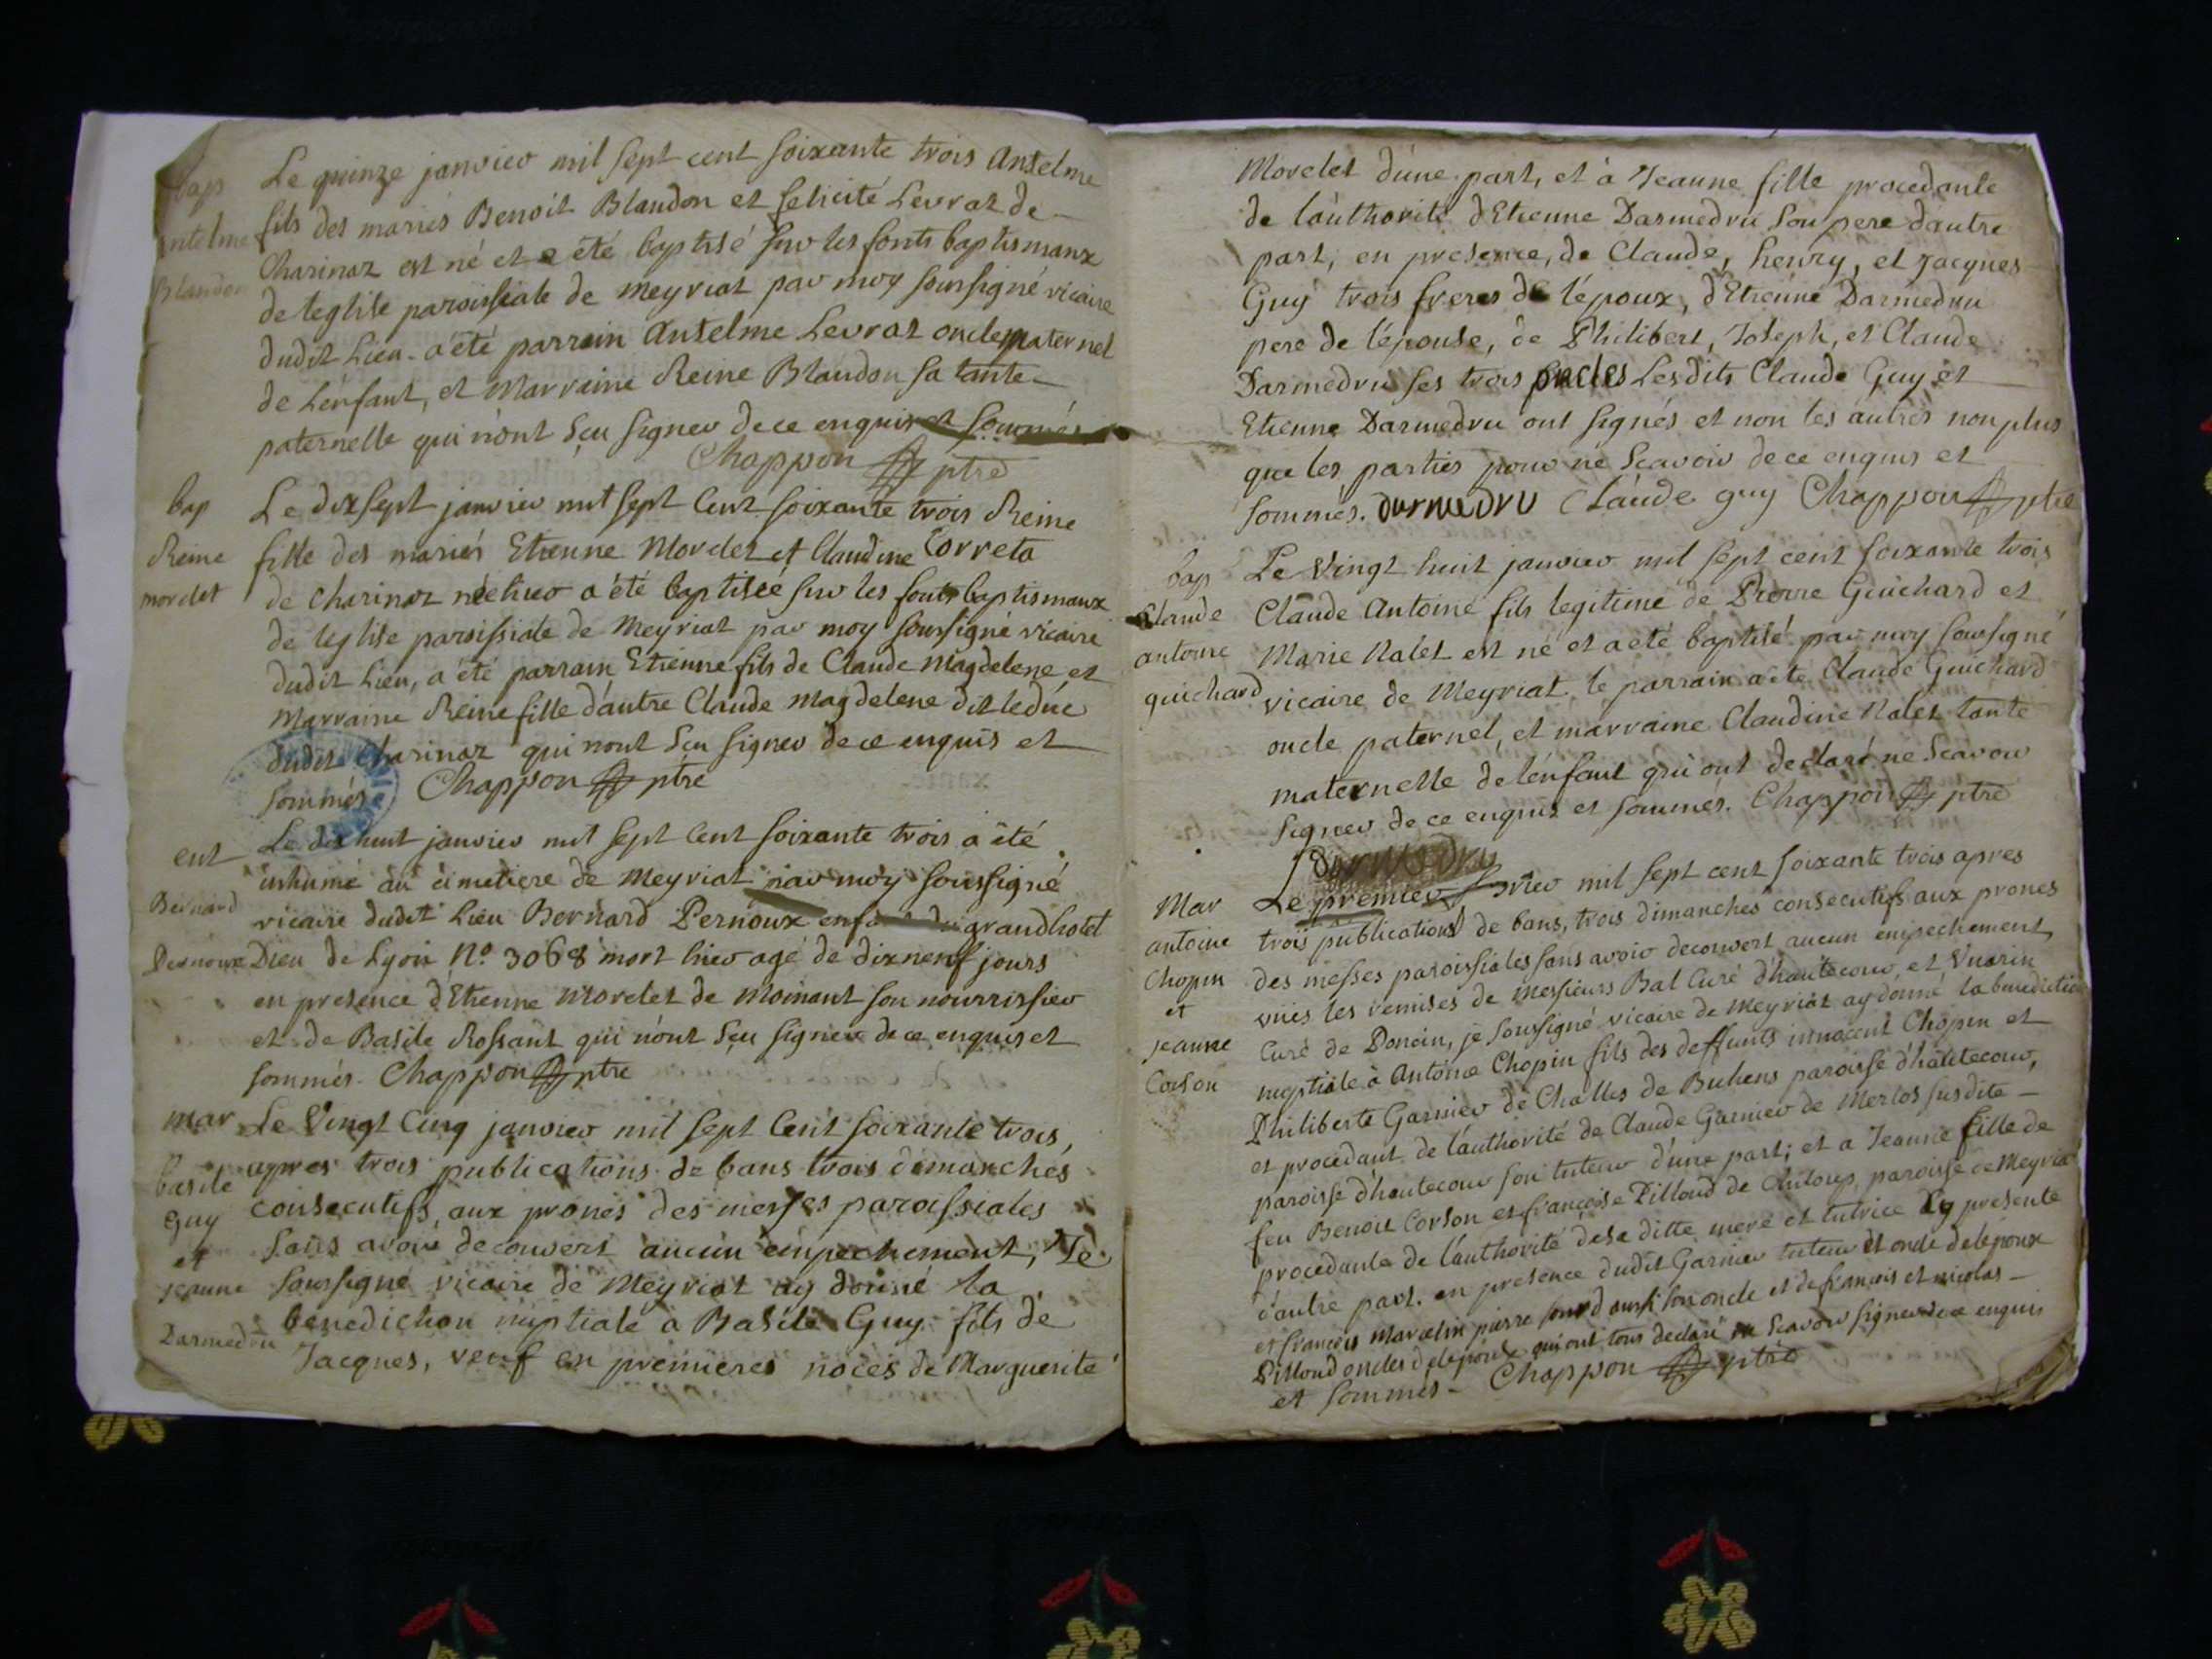 bap
antelme
Blandon
Le quinze janvier mil sept cent soixante trois Antelme
fils des mariés Benoit Blandon et felicité Levrat de
Charinaz est né et a été baptisé sur les fonts baptismaux
de leglise paroissiale de meyriat par moy soussigné vicaire
dudit Lieu. a été parrain Antelme Levrat oncle maternel
de L'enfant, et Marraine Reine Blandon sa tante
paternelle qui n'ont sçu signer de ce enquis et sommés
Chappon ptre
bap
Reine
morelet
Le dix sept janvier mil sept cent soixante trois Reine
fille des mariés Etienne Morelet et Claudine Correta
de Charinaz née hier a été baptisée sur les fonts baptismaux
de leglise paroissiale de Meyriat par moy soussigné vicaire
dudit Lieu, a été parrain Etienne fils de Claude Magdelene et
Marraine Reine fille d'autre Claude Magdelene dit leduc
dudit Charinaz qui n'ont sçu signer de ce enquis et
sommés Chappon ptre
ent
Bernard
Pernoux
Le dix huit janvier mil sept cent soixante trois a été
inhumé au cimetiere de Meyriat par moy soussigné
vicaire dudit Lieu Bernard Pernoux enfant du grand hotel
Dieu de Lyon N.o 3068 mort hier agé de dix neuf jours
en presence d'Etienne Morelet de Moinant son nourrissier
et de Basile Rossant qui n'ont sçu signer de ce enquis et
sommés. Chappon ptre
mar
basile
Guy
et
jeanne
Darmedru
Le Vingt Cinq janvier mil sept Cent soixante trois,
apres trois publications de bans trois dimanches
consecutifs, aux prones des messes paroissiales
sans avoir decouvert aucun empechement, Je
soussigné vicaire de Meyriat ay donné la
benediction nuptiale à Basile Guy fils de
Jacques, veuf en premieres noces de Marguerite
Morelet d'une part, et à Jeanne fille procedante
de l'authorité d'Etienne Darmedru son pere d'autre
part, en presence, de Claude, henry, et Jacques
Guy trois freres de l'époux, d'Etienne Darmedru
pere de l'épouse, de Philibert, Joseph, et Claude
Darmedru ses trois oncles Lesdits Claude Guy et
Etienne Darmedru ont signés et non les autres non plus
que les parties pour ne scavoir de ce enquis et
sommés. Darmedru Claude guy Chappon ptre
bap
Claude
antoine
guichard
Le Vingt huit janvier mil sept cent soixante trois
Claude Antoine fils legitime de Pierre Guichard et
Marie Nalet est né et a été baptisé par moy soussigné
vicaire de Meyriat, le parrain a été Claude Guichard
oncle paternel, et marraine Claudine Nalet tante
maternelle de l'enfant qui ont declaré ne scavoir
signer de ce enquis et sommés. Chappon ptre
Mar
antoine
Chopin
et
jeanne
Corson
Le premier fevrier mil sept cent soixante trois apres
trois publications de bans, trois dimanches consecutifs aux prones
des messes paroissiales sans avoir decouvert aucun empechement,
vuës les remises de Messieurs Bal Curé d'hautecour, et Vuarin
Curé de Doncin, je soussigné vicaire de Meyriat ay donné la benediction
nuptiale à Antoine Chopin fils des deffunts innocent Chopin et
Philiberte Garnier de Challes de Buhens paroisse d'hautecour,
et procedant de l'authorité de Claude Garnier de Merlos susdite
paroisse d'hautecour son tuteur d'une part; et a Jeanne fille de
feu Benoit Corson et françoise Pilloud de Chiloup, paroisse de Meyriat
procedante de l'authorité de sa ditte mere et tutrice Icy presente
d'autre part. en presence dudit Garnier tuteur et oncle de l'époux
et françois Marcelin pierre aussi son oncle et de françois et nicolas
Pilloud oncles de l'épouse qui ont tous declaré ne scavoir signer de ce enquis
et sommés - Chappon ptre